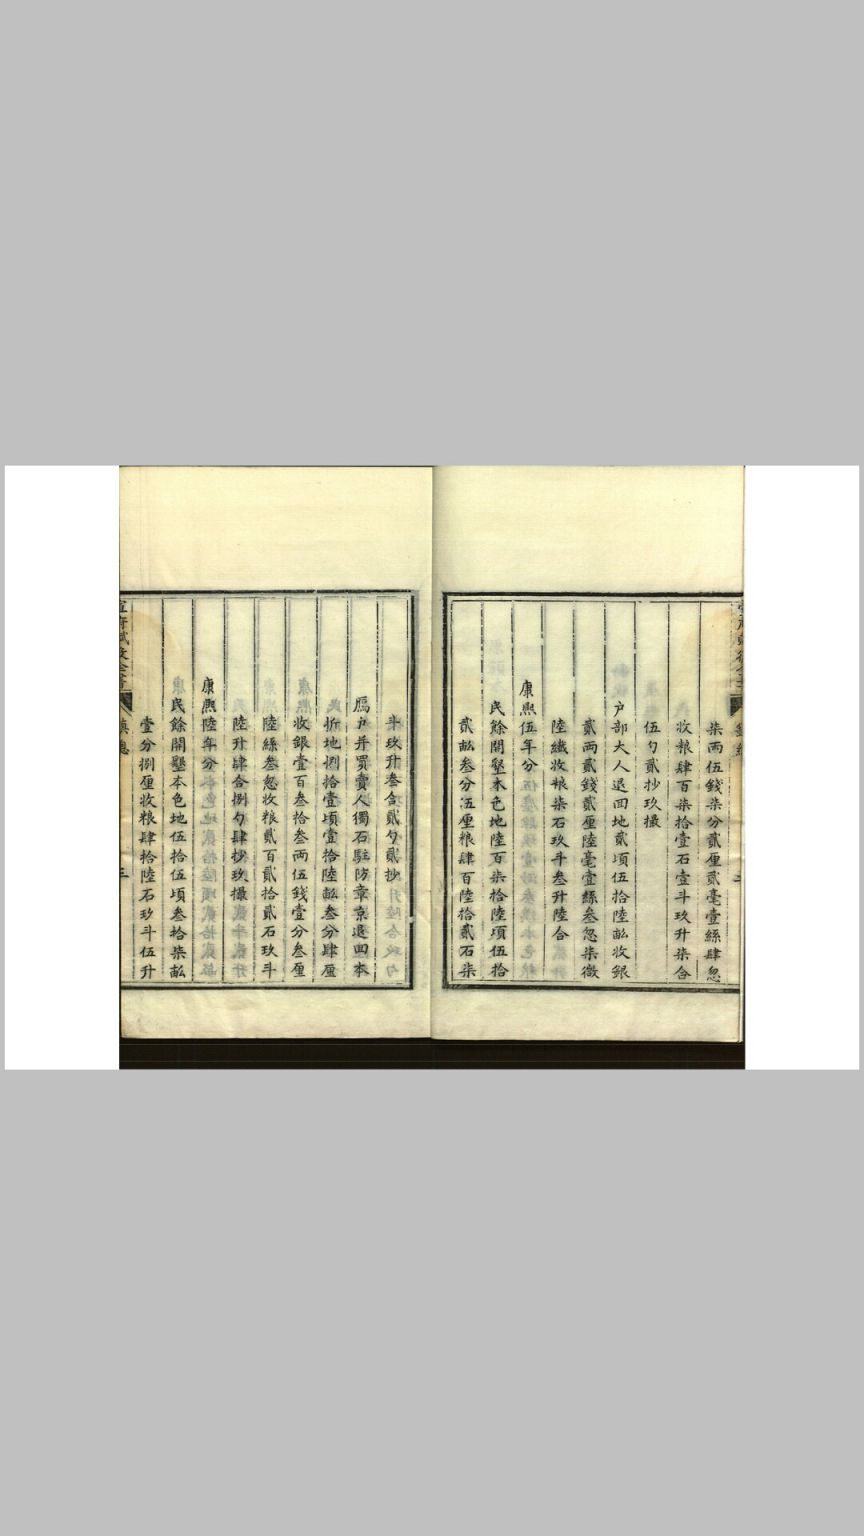 柒兩伍錢柒分貳厘貳毫壹絲肆忽
收粮肆百柒拾壹石壹斗玖升柒合
伍勺貳抄玖撮
户部大人退回地貳頃伍拾陸畝收銀
貳兩貳錢貳厘陸毫壹絲叁忽柒微
陸纖收粮柒石玖斗叁升陸合
康熙伍年分
民餘開墾本色地陸百柒拾陸頃伍拾
貳畝叁分伍厘粮肆百陸拾貳石柒
斗玖升叁合貳勺貳抄
鴈户并買賣人獨石駐防章京退回本
折地捌拾壹頃壹拾陸畝叁分肆厘
收銀壹百叁拾叁兩伍錢壹分叁厘
陸絲叁忽收粮貳百貳拾貳石玖斗
陸升肆合捌勺肆抄玖撮
康熙陸年分
民餘開墾本色地伍拾伍頃叁拾柒畝
壹分捌厘收粮肆拾陸石玖斗伍升
鎮總
三